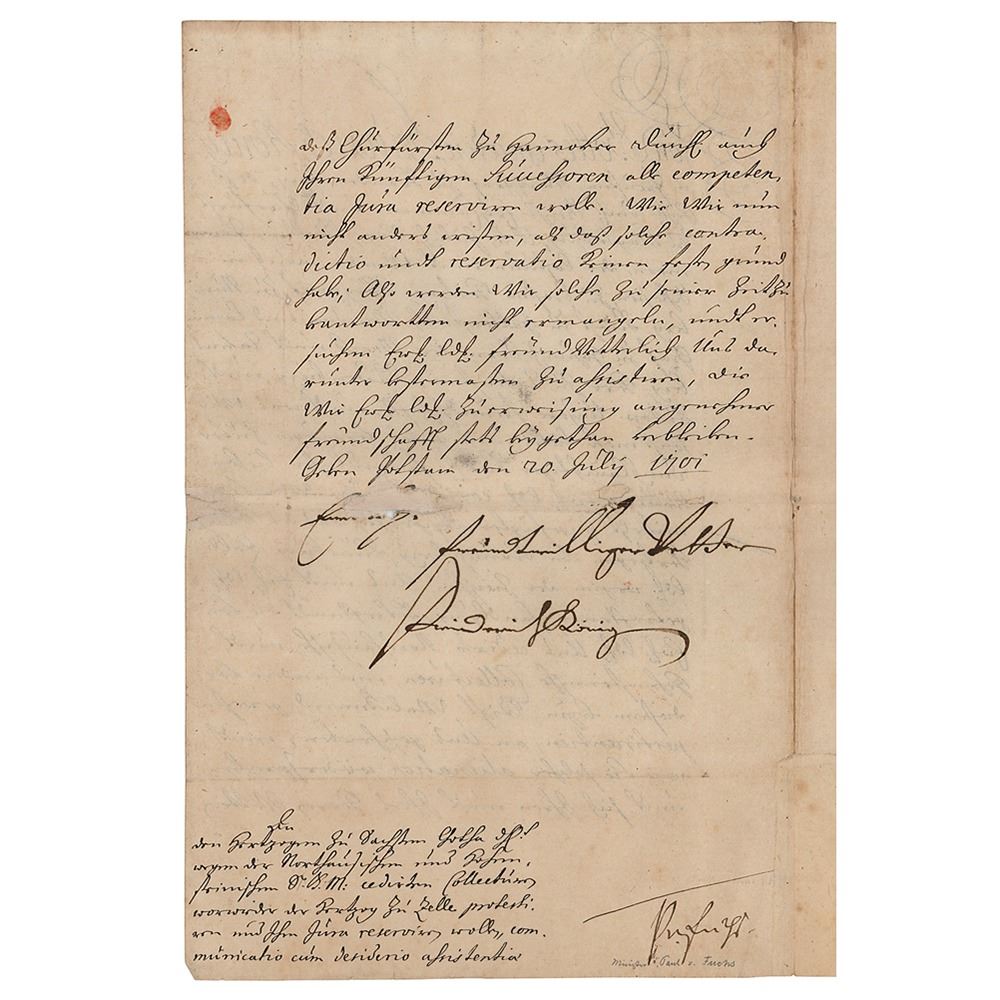 deß Churfürsten zu Hannover Durchl. auch
Ihren Künfftigen Successoren alle competen,
tia Jura reserviren wolle. Wie Wir nun
nicht anders wissen, als daß solche contra,
dictio undt reservatio keinen festen grund
habe; Also werden Wir solche zu seiner Zeit zu
beantwortten nicht ermangeln, undt er,
suchen Ewr. Ldl. freundVetterlich Uns da,
runter bestermaßen zu assistiren, die
Wir Ewr. Ldl. zu erweisung angenehmer
freundschafft stets beygethan verbleiben.
Geben Potstam den 20. July 1701
freundtwilliger Vetter
Friderich König
An
den Hertzogen zu Sachsen Gotha
wegen der Northausischen und Hohen,
steinischen S. K. M: cedirten Collecturen
worwieder der Hertzog zu Zelle protesti,
ren und Ihm Jura reserviren wollen, com,
municatio cum desiderio assistentiae
P. v. Fuchs.
Minister Paul v. Fuchs